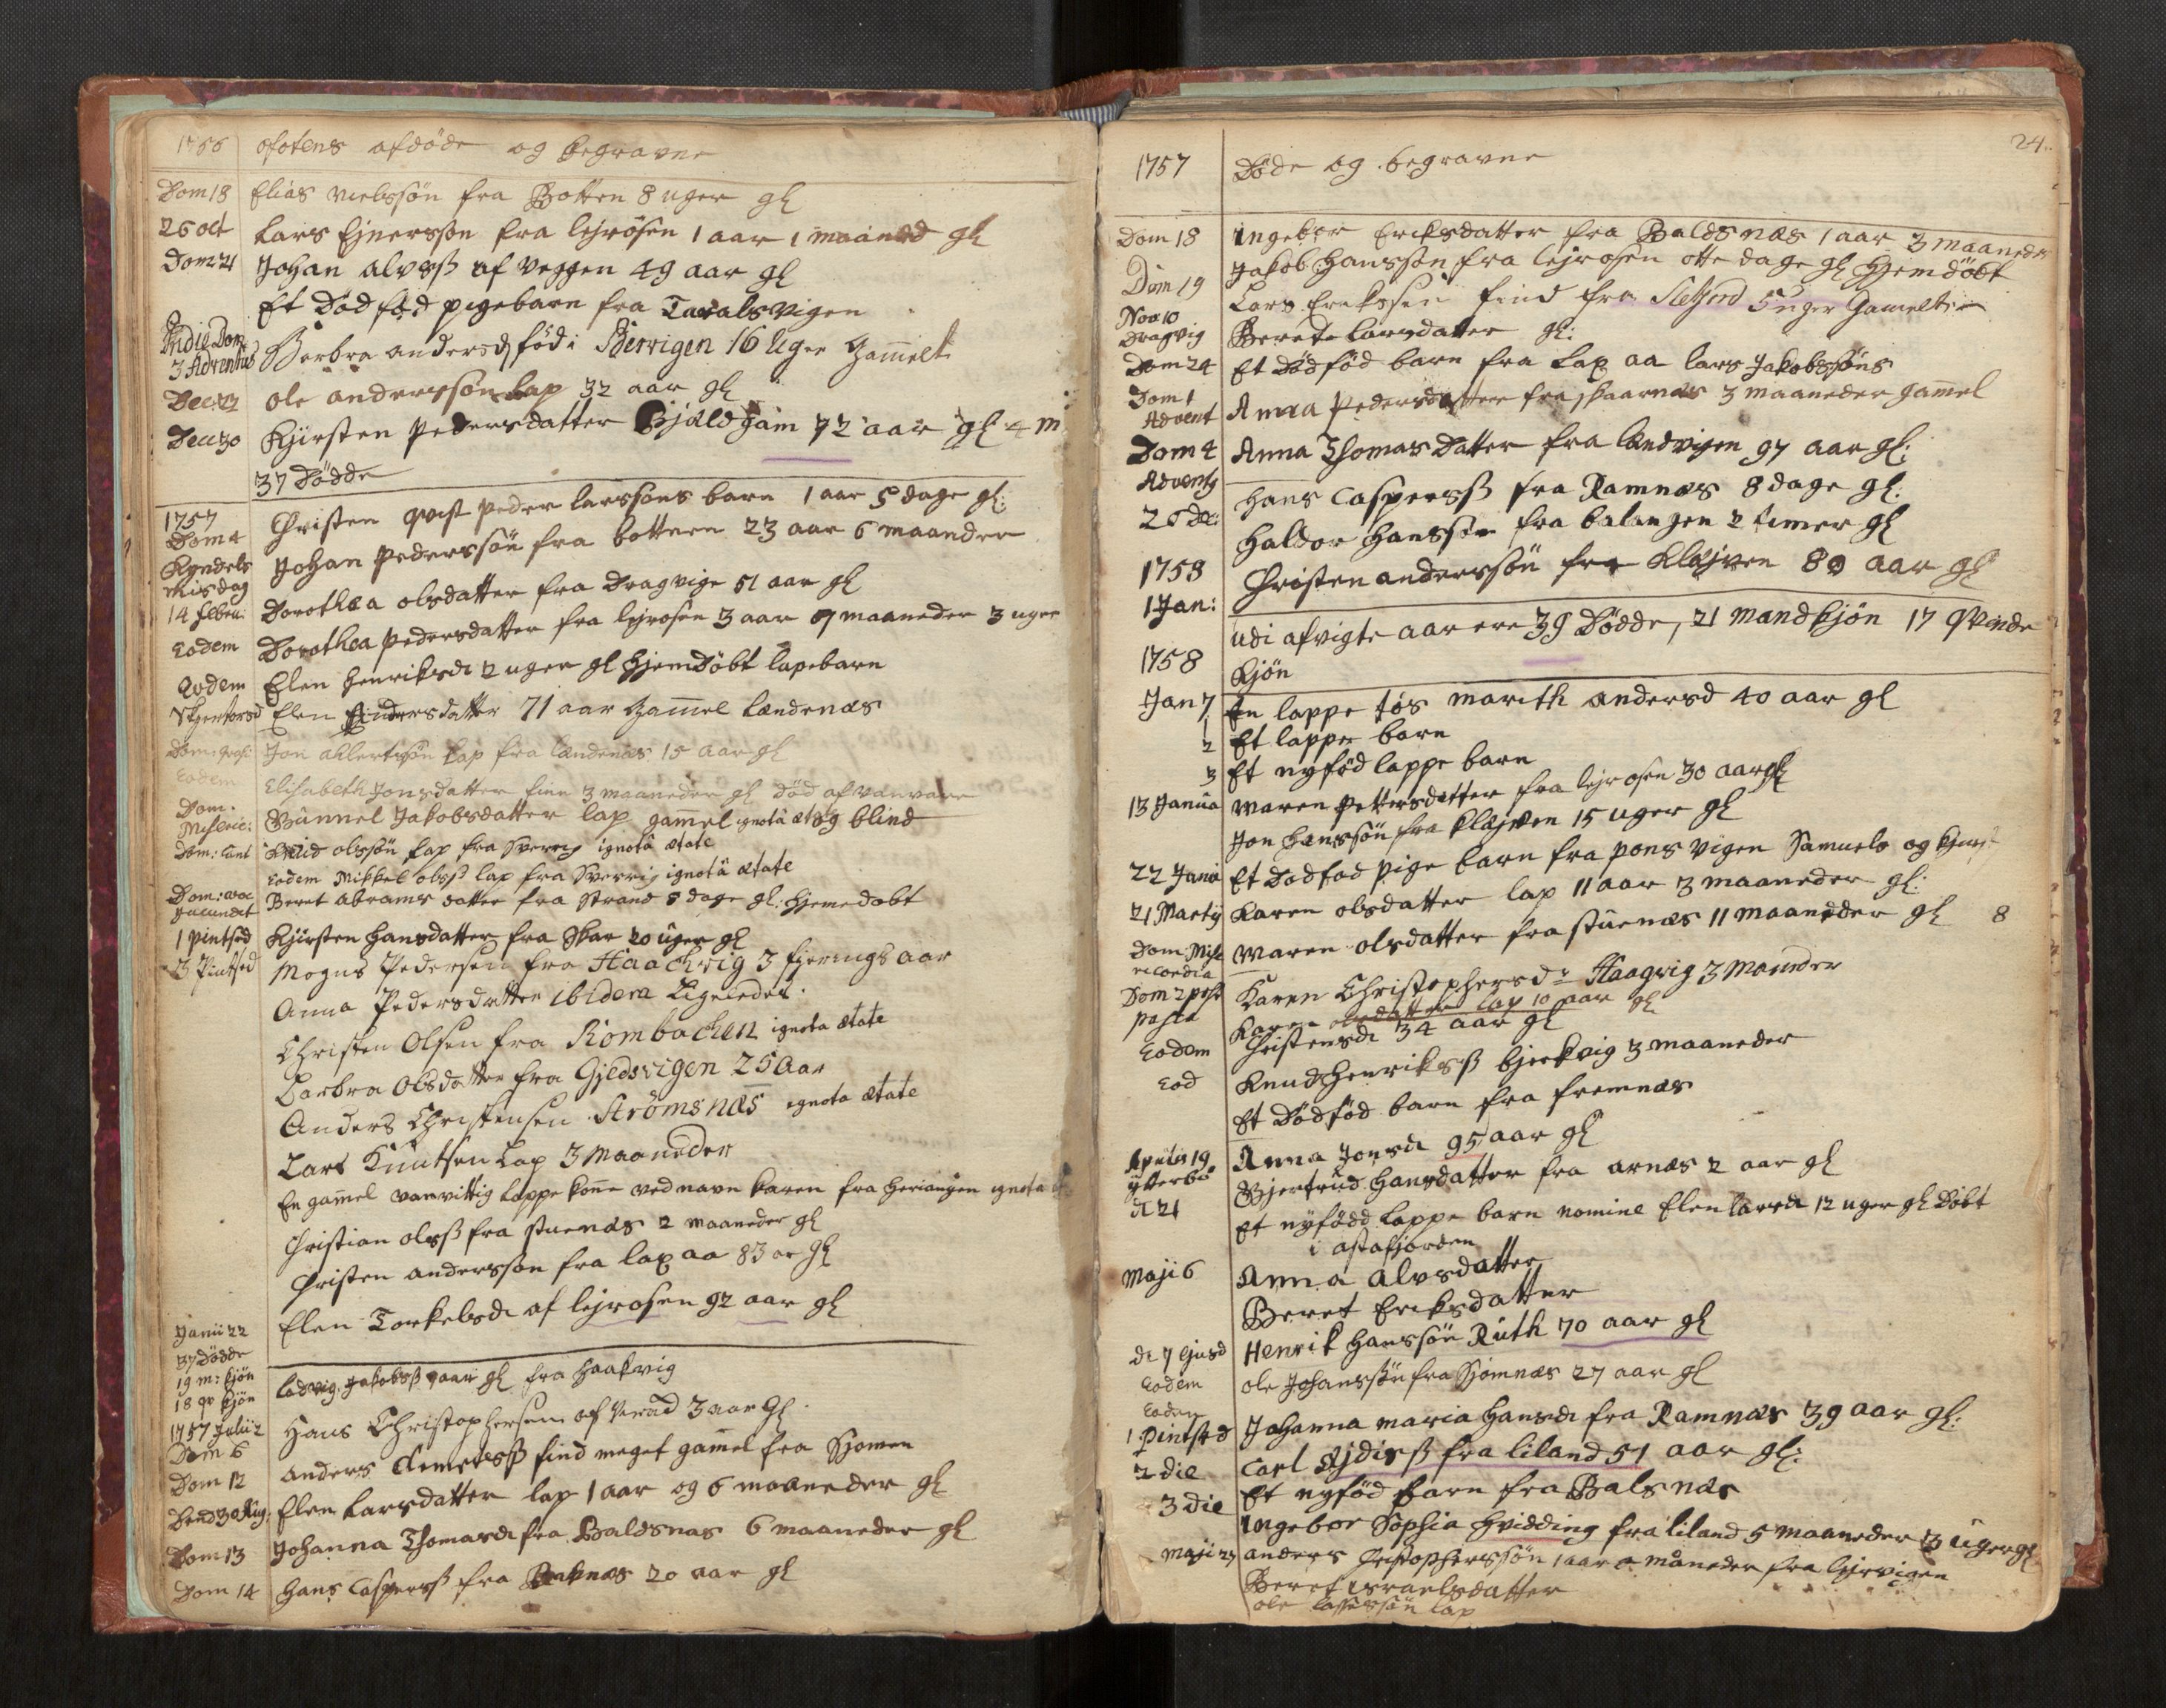 1756 ofotens afdöde og begravne
Dom 18 Elias nielssön fra Botten 8 uger gl
26 oct Lars Ejnersson fra lejrösen 1 aar 1 maaned gl
Dom 21 Johan alvsß af veggen 49 aar gl
Et Död föd pigebarn fra Taralsvigen
Pridie Dom 3 Adventus Berbra andersd föd i Berrigen 16 Uger Gam̄elt
Dec 22 ole anderssön Lap 32 aar gl
Dec 30 Kjirsten Pedersdatter Bjeldgam 72 aar gl 4 m
37 Dödde
1757
Dom 4 Christen qvist peder larssöns barn 1 aar 5 dage gl:
Kyndels misdag Johan Pederssön fra bottnen 23 aar 6 maander
14 febru: Dorothea olsdatter fra Dragvige 51 aar gl
Eodem Dorothea pedersdatter fra lejrosen 3 aar 7 maaneder 3 uger
Eodem Elen Henriksd: 2 uger gl hjemdöbt lapebarn
Skjertorsd Elen Eindersdatter 71 aar Gam̄el Lændenæs
Jon allertsön Lap fra Lændenæs 15 aar gl
Eodem Elisabeth Jonsdatter finn 3 maaneder gl död af vanvare
Dom. Miseric: Gunnel Jakobsdatter lap gam̄el ignotâ ætate og blind
Dom: Cant olssön lap fra Sverrig ignotâ ætate
Eodem Mikkel olsß lap fra Sverrig ignotâ ætate
Dom: voc jucundit Beret abrams datter fra Strand 8 dage gl: hjemedobt
1 Pintsed Kjirsten Hansdatter fra Skar 20 uger gl
3 Pintsed Mogns Pedersen fra Haachvig 3 fjerings aar
Anna Pedersdatter ibidem Ligeledes.
Christen Olsen fra Rombachen ignota ætate
Barbra Olsdatter fra Gjedsvigen 25 Aar
Anders Christensen Strömsnæs ignota ætate
Lars Knutsen Lap 3 Maaneder
En gam̄el vanvittig lappe kon̄e ved navn Karen fra Heriangen ignota
Christian olsß fra stuenæs 2 maaneder gl
Christen anderssön fra lax aa 83 ar gl
Junii 22 Elen Torkelsd: af lejrosen 92 aar gl
37 Dödde
19 m: kjön
18 qv kjön
Ludvig Jakobsß aar gl fra Haakvig
1757 Julii 2
Dom 6 Hans Christophersen af 3 aar gl.
Dom 12 Anders Clemetsß find meget gam̄el fra Skjomen
Dend 30 Aug: Elen Larsdatter lap 1 aar og 6 maaneder gl
Dom 13 Johanna Thomasd: fra Baldsnas 6 maaneder gl
Dom 14 Hans Caspersß fra 20 aar gl
24.
1757 Döde og begravne
Dom 18 Ingebor Eriksdatter fra Baldsnæs 1 aar 3 maaneder
Jakob Hanssön fra lejrosen otte dage gl Hjemdöbt
Dom 19 Lars Erikssen find fra Sletjord 5 uger Gamelt
Nov 10 Dragvig Berete larsdatter gl:
Dom 24 Et Dödföd barn fra Lax aa lars Jakobssöns
Dom 1 Advent Anna Pedersdatter fra skaarnæs 3 maaneder gam̄el
Dom 4 Advents Anna Thomas Datter fra landvigen 97 aar gl:
Hans Caspersß fra Ramnæs 8 dage gl:
26 Dec: Haldor Hanssön fra balangen 2 timer gl
1758
1 Jan: Christen anderssön fra Kleiven 80 aar gl
udi afvigte aar ere 39 Dödde, 21 Mandkjön 17 qvinde
Kjön
1758
Jan 7 1 En lappe tös marith andersd 40 aar gl
2 Et lappe barn
3 Et nyföd lappe barn
13 Janua Maren Pettersdatter fra lejrosen 30 aar gl
Jon Hanssön fra Klejven 15 uger gl
22 Janua Et Dodfod pige barn fra pons vigen Samuels og
21 Martij Karen olsdatter lap 11 aar 3 maaneder gl:
Dom: Misericordia Maren olsdatter fra stuenæs 11 maaneder gl 8
Dom 2 post pasca Karen Christophersdr Haagvig 3 Maaneder
Karen olsdatter lap 10 aar gl.
Eodem Christensd: 34 aar gl
Eod Knud Henriksß bjerkvig 3 maaneder
Et Dödföd barn fra fremnæs
Aprilis 19 Anna Jonsd: 95 aar gl
ytterbö Gjertrud Hansdatter fra arnæs 2 aar gl
d 21 Et nyfödd Lappe barn nomine Elen larsd: 12 uger gl Döbt
i astafjorden
Maji 6 Anna Alvsdatter
Beret Eriksdatter
d: 7 ejusd Henrik Hanssön Ruth 70 aar gl
Eodem ole Johanssön fra Skjomnæs 27 aar gl
Eodem
1 pintsed Johanna maria Hansd: fra Ramnæs 39 aar gl:
2 die Carl fra liland 51 aar gl:
3 die Et nyföd barn fra Balsnæs
Ingebor Sophia Hvidding fra liland 5 maaneder 3 uger gl
Maji 27 anders Christopherssön 1 aar måneder fra lejrvigen
Beret israelsdatter
ole lassessön lap